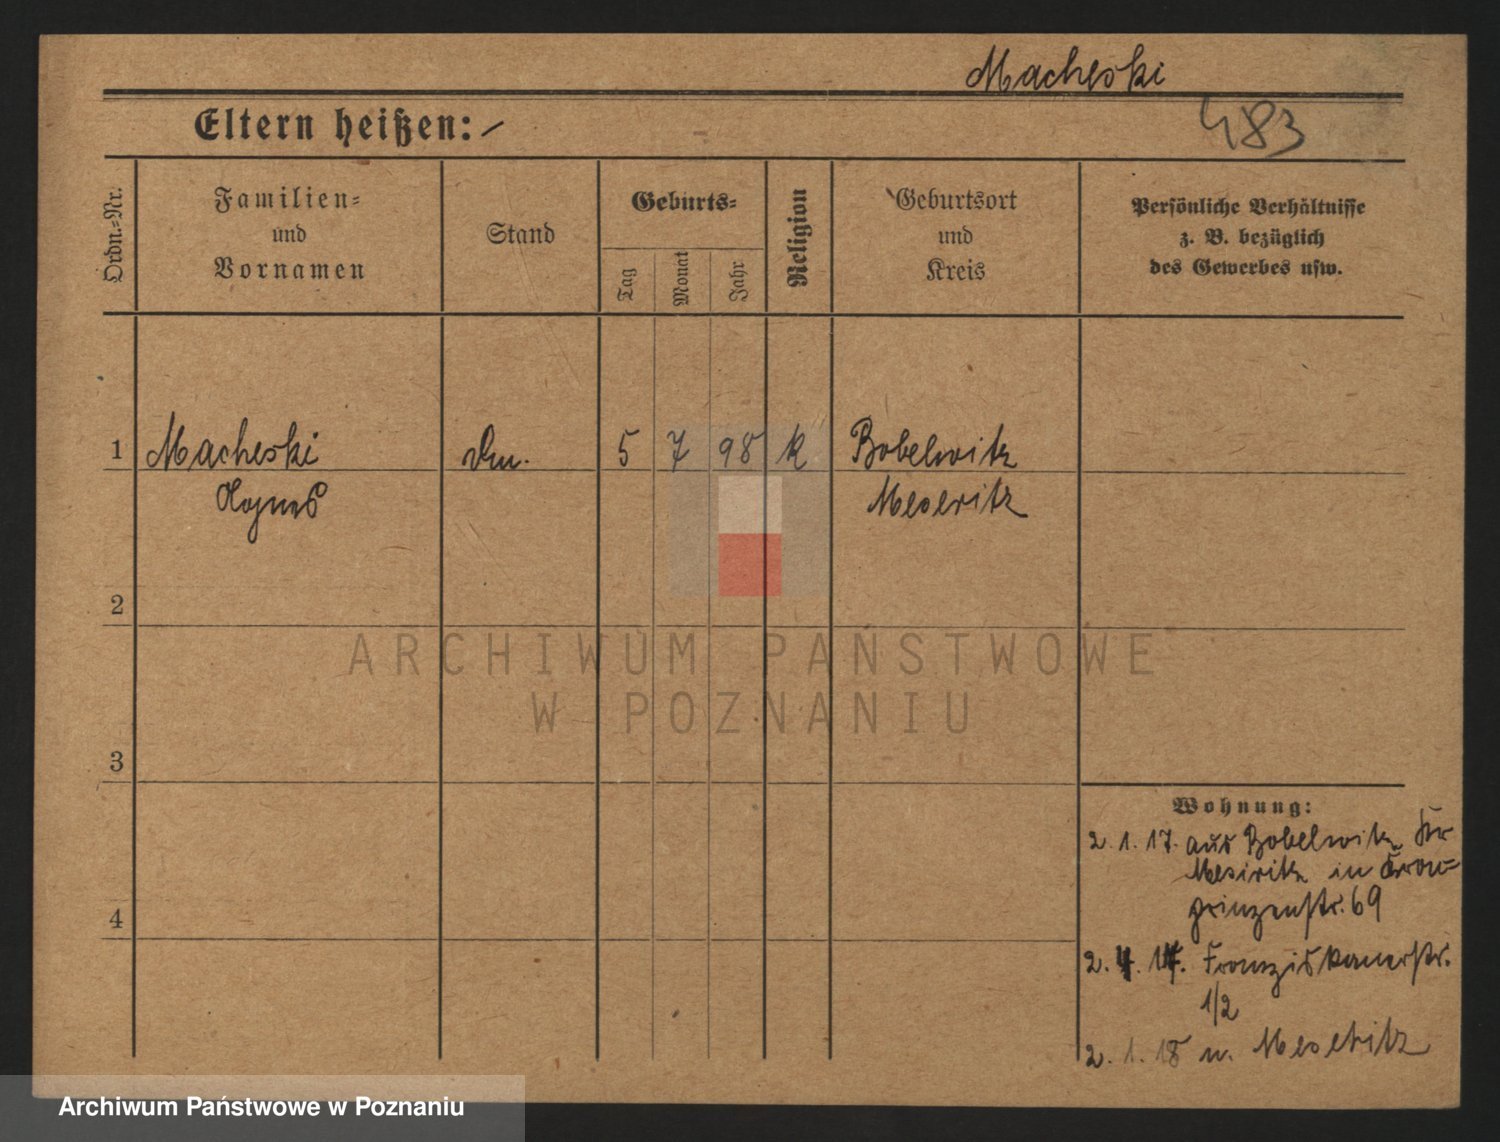 Macheski
483
Eltern heißen: –
Ordn.-Nr.
Familien-
und
Vornamen
Stand
Geburts-
Tag
Monat
Jahr
Religion
Geburtsort
und
Kreis
Persönliche Verhältnisse
z. B. bezüglich
des Gewerbes usw.
1 Macheski 5 7 98 k Bobelwitz
Agnes Meseritz
2
ARCHIWUM PAŃSTWOWE
W POZNANIU
3
Wohnung:
2. 1. 17. aus Bobelwitz Kr
Meseritz in Kron-
prinzenstr. 69
4
2. 4. 17. Franziskanerstr.
1/2
2. 1. 18 n. Meseritz
Archiwum Państwowe w Poznaniu